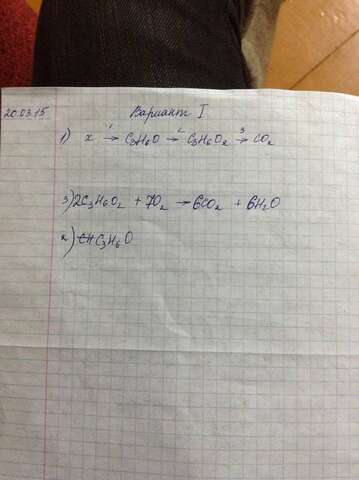 20.03.15
Вариант I
1) x →¹ C₃H₆O →² C₃H₆O₂ →³ CO₂
3) 2C₃H₆O₂ + 7O₂ → 6CO₂ + 6H₂O
2) C₃H₆O